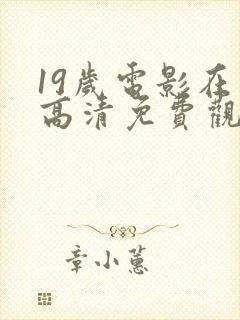 19歲電影在
高清免費觀
章小蕙